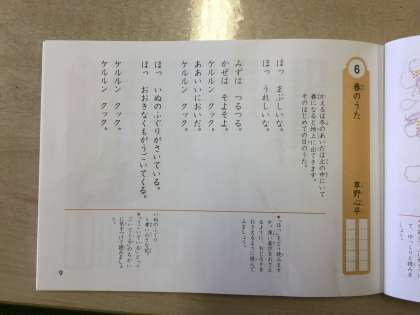 6
春のうた
草野心平
かえるは冬のあいだは土の中にいて
春になると地上に出てきます。
そのはじめての日のうた。
ほっ まぶしいな。
ほっ うれしいな。
みずは つるつる。
かぜは そよそよ。
ケルルン クック。
ああいいにおいだ。
ケルルン クック。
ほっ いぬのふぐりがさいている。
ほっ おおきなくもがうごいてくる。
ケルルン クック。
ケルルン クック。
いぬのふぐり
9